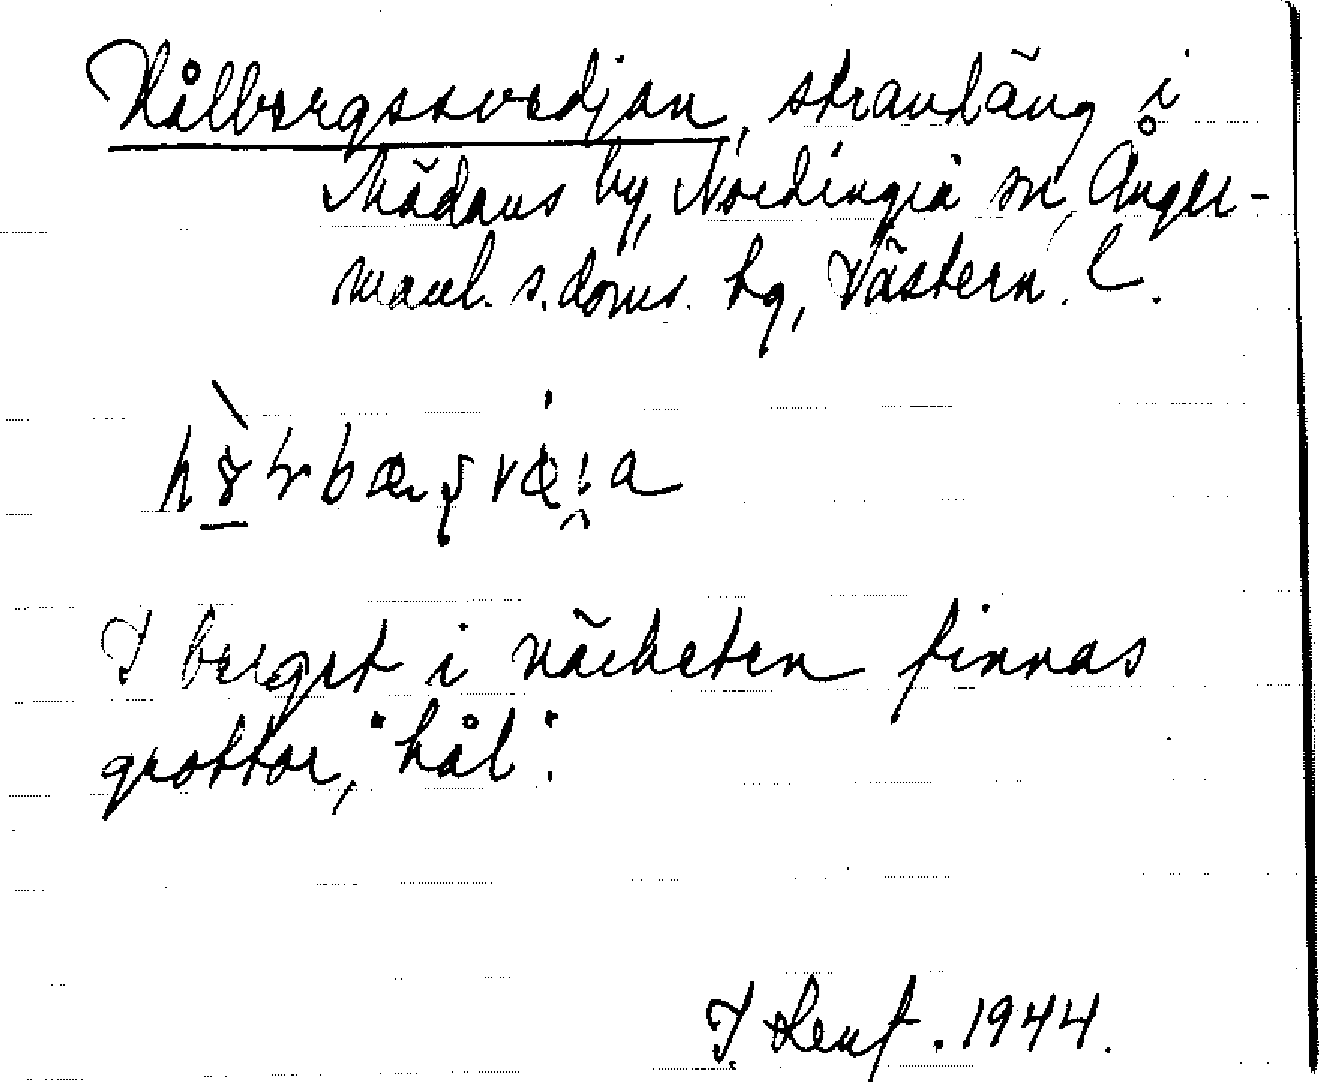 Hålbergssvedjan, strandäng i
Mädans by, Nordingrå sn, Ånger-
manl. s. doms. hg, Västern. l.
I berget i närheten finnas
grottor, "hål".
I. Hemf. 1944.